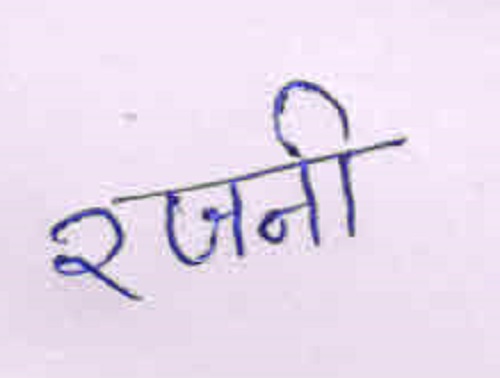 रजनी